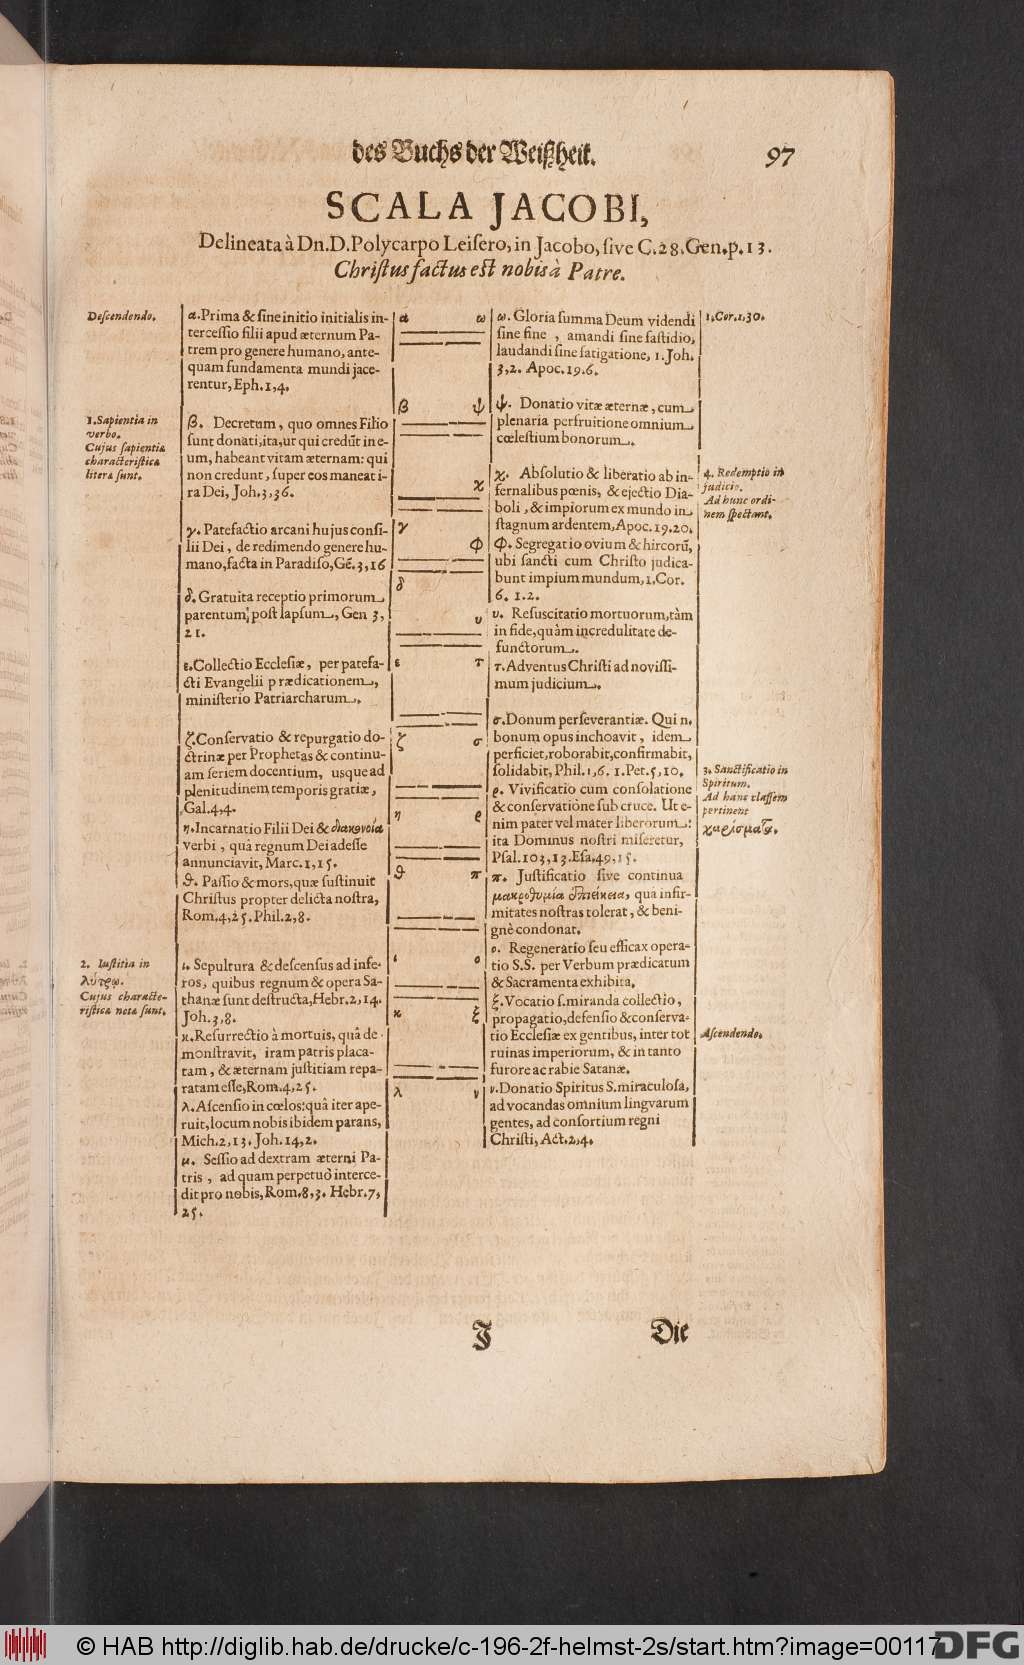 des Buchs der Weißheit.
97
SCALA JACOBI,
Delineata à Dn. D. Polycarpo Leisero, in Jacobo, sive C. 28. Gen. p. 13.
Christus factus est nobis à Patre.
Descendendo.
1. Sapientia in
verbo.
Cujus sapientiæ
characteristicæ
literæ sunt.
2. Iustitia in
λύτρῳ.
Cujus characte-
risticæ notæ sunt.
α. Prima & sine initio initialis in-
tercessio filii apud æternum Pa-
trem pro genere humano, ante-
quam fundamenta mundi jace-
rentur, Eph. 1, 4.
β. Decretum, quo omnes Filio
sunt donati, ita, ut qui credũt in e-
um, habeant vitam æternam: qui
non credunt, super eos maneat i-
ra Dei, Joh. 3, 36.
γ. Patefactio arcani hujus consi-
lii Dei, de redimendo genere hu-
mano, facta in Paradiso, Gẽ. 3, 16
δ. Gratuita receptio primorum
parentum, post lapsum, Gen 3,
21.
ε. Collectio Ecclesiæ, per patefa-
cti Evangelii prædicationem,
ministerio Patriarcharum.
ζ. Conservatio & repurgatio do-
ctrinæ per Prophetas & continu-
am seriem docentium, usque ad
plenitudinem temporis gratiæ,
Gal. 4, 4.
η. Incarnatio Filii Dei & διακονία
verbi, quâ regnum Dei adesse
annunciavit, Marc. 1, 15.
ϑ. Passio & mors, quæ sustinuit
Christus propter delicta nostra,
Rom, 4, 25. Phil. 2, 8.
ι. Sepultura & descensus ad infe-
ros, quibus regnum & opera Sa-
thanæ sunt destructa, Hebr. 2, 14.
Joh. 3, 8.
κ. Resurrectio à mortuis, quâ de-
monstravit, iram patris placa-
tam, & æternam justitiam repa-
ratam esse, Rom. 4, 25.
λ. Ascensio in cœlos: quâ iter ape-
ruit, locum nobis ibidem parans,
Mich. 2, 13. Joh. 14, 2.
μ. Sessio ad dextram æterni Pa-
tris, ad quam perpetuò interce-
dit pro nobis, Rom. 8, 3. Hebr. 7,
25.
α ω
β ψ
χ
γ
φ
δ
υ
ε τ
ζ σ
η ρ
ϑ π
ι ο
κ ξ
λ ν
ω. Gloria summa Deum videndi
sine fine, amandi sine fastidio,
laudandi sine fatigatione, 1. Joh.
3, 2. Apoc. 19. 6.
ψ. Donatio vitæ æternæ, cum
plenaria perfruitione omnium
cœlestium bonorum.
χ. Absolutio & liberatio ab in-
fernalibus pœnis, & ejectio Dia-
boli, & impiorum ex mundo in
stagnum ardentem, Apoc. 19. 20.
φ. Segregatio ovium & hircorũ,
ubi sancti cum Christo judica-
bunt impium mundum, 1. Cor.
6. 1. 2.
υ. Resuscitatio mortuorum, tàm
in fide, quàm incredulitate de-
functorum.
τ. Adventus Christi ad novissi-
mum judicium.
σ. Donum perseverantiæ. Qui n.
bonum opus inchoavit, idem
perficiet, roborabit, confirmabit,
solidabit, Phil. 1, 6. 1. Pet. 5, 10.
ρ. Vivificatio cum consolatione
& conservatione sub cruce. Ut e-
nim pater vel mater liberorum:
ita Dominus nostri miseretur,
Psal. 103, 13. Esa. 49, 15.
π. Justificatio sive continua
μακροθυμία ἐπιείκεια, quâ infir-
mitates nostras tolerat, & beni-
gnè condonat.
ο. Regeneratio seu efficax opera-
tio S.S. per Verbum prædicatum
& Sacramenta exhibita.
ξ. Vocatio s. miranda collectio,
propagatio, defensio & conserva-
tio Ecclesiæ ex gentibus, inter tot
ruinas imperiorum, & in tanto
furore ac rabie Satanæ.
ν. Donatio Spiritus S. miraculosa,
ad vocandas omnium lingvarum
gentes, ad consortium regni
Christi, Act. 2, 4.
1. Cor. 1, 30.
4. Redemptio in
judicio.
Ad hunc ordi-
nem spectant.
3. Sanctificatio in
Spiritum.
Ad hanc classem
pertinent
χαρίσματα.
Ascendendo.
J
Die
© HAB http://diglib.hab.de/drucke/c-196-2f-helmst-2s/start.htm?image=00117
DFG